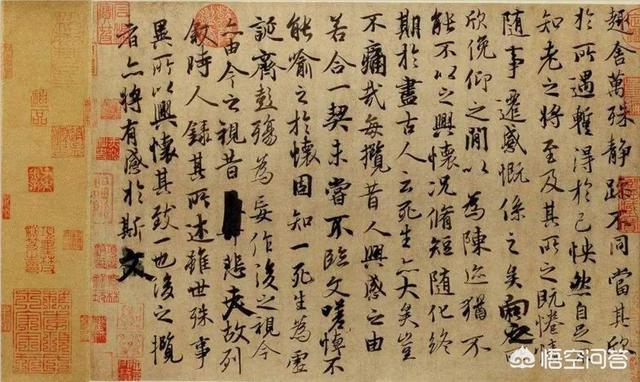 趣舍萬殊靜躁不同當其欣
於所遇蹔得於己怏然自足
知老之將至及其所之既惓情
隨事遷感慨係之矣向之
欣俛仰之閒以為陳迹猶不
能不以之興懷況脩短隨化終
期於盡古人云死生亦大矣豈
不痛哉每攬昔人興感之由
若合一契未嘗不臨文嗟悼不
能喻之於懷固知一死生為虛
誕齊彭殤為妄作後之視今
亦由今之視昔悲夫故列
敘時人錄其所述雖世殊事
異所以興懷其致一也後之攬
者亦將有感於斯文
悟空问答